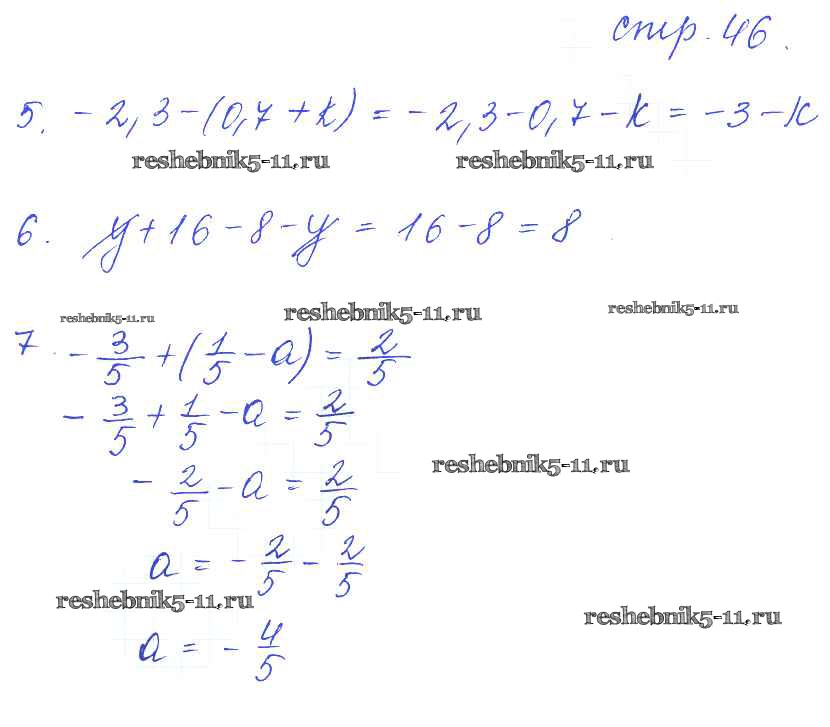 стр. 46.
5. -2,3-(0,7+k) = -2,3-0,7-k = -3-k
reshebnik5-11.ru reshebnik5-11.ru
6. y+16-8-y = 16-8 = 8
reshebnik5-11.ru reshebnik5-11.ru reshebnik5-11.ru
7. -3/5 + (1/5 - a) = 2/5
-3/5 + 1/5 - a = 2/5
reshebnik5-11.ru
-2/5 - a = 2/5
a = -2/5 - 2/5
reshebnik5-11.ru reshebnik5-11.ru
a = -4/5